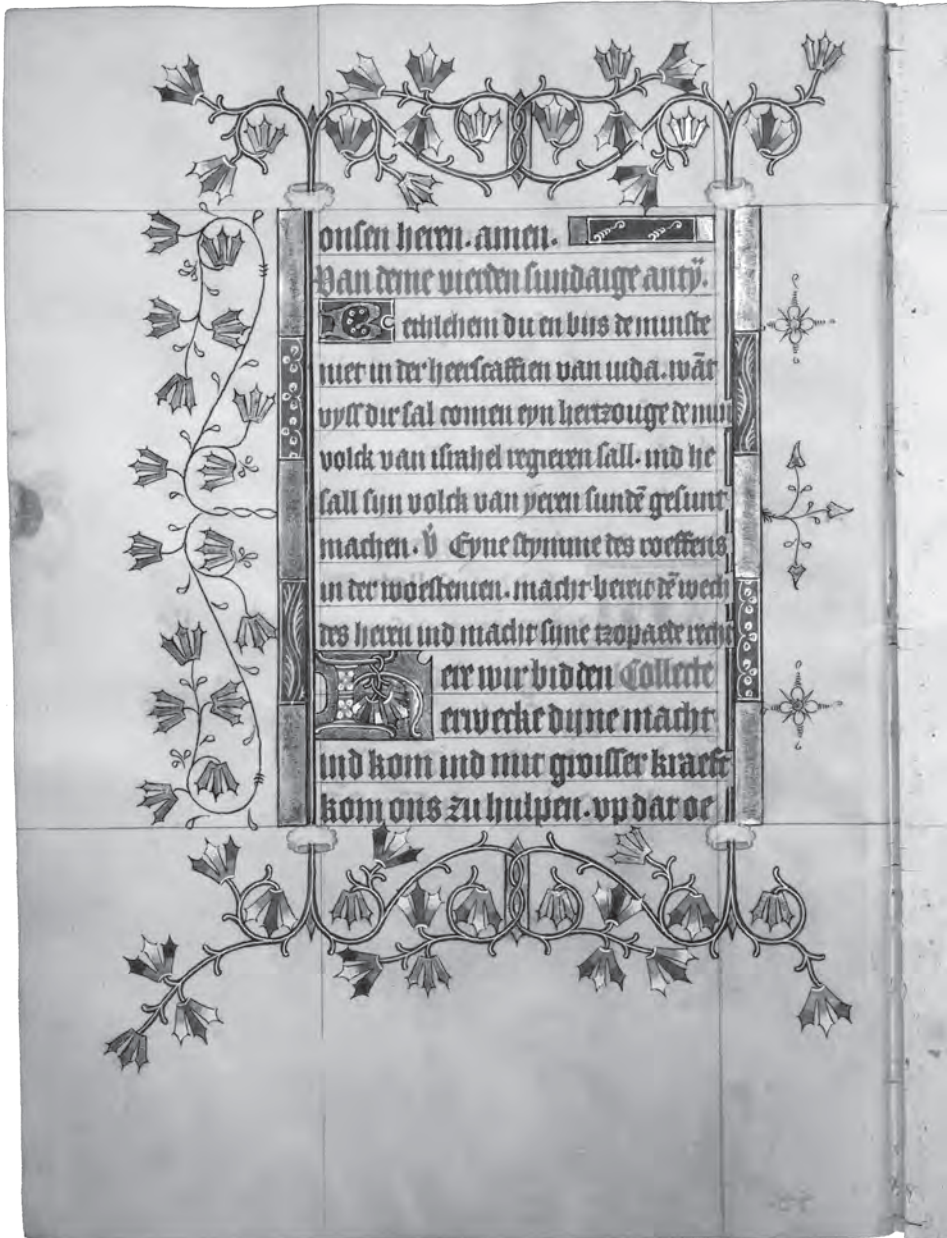 onsen heren. amen.
Van deme vierden sundaige antÿ.
Bethlehem du en bis de minste
niet in der heerscaffien van iuda. wāt
vyss dir sal comen eyn hertzouge de min
volck van israhel regieren sall. ind he
sall sijn volck van yeren sundē gesunt
machen. v̇ Eyne stymme des roeffens
in der woestenien. macht bereit dē wech
des heren ind macht sine tzopaede recht
Here wir bidden Collecte
erwecke dyne macht
ind kom ind mit groisser kraeft
kom ons zu hulpen. vp dat oe